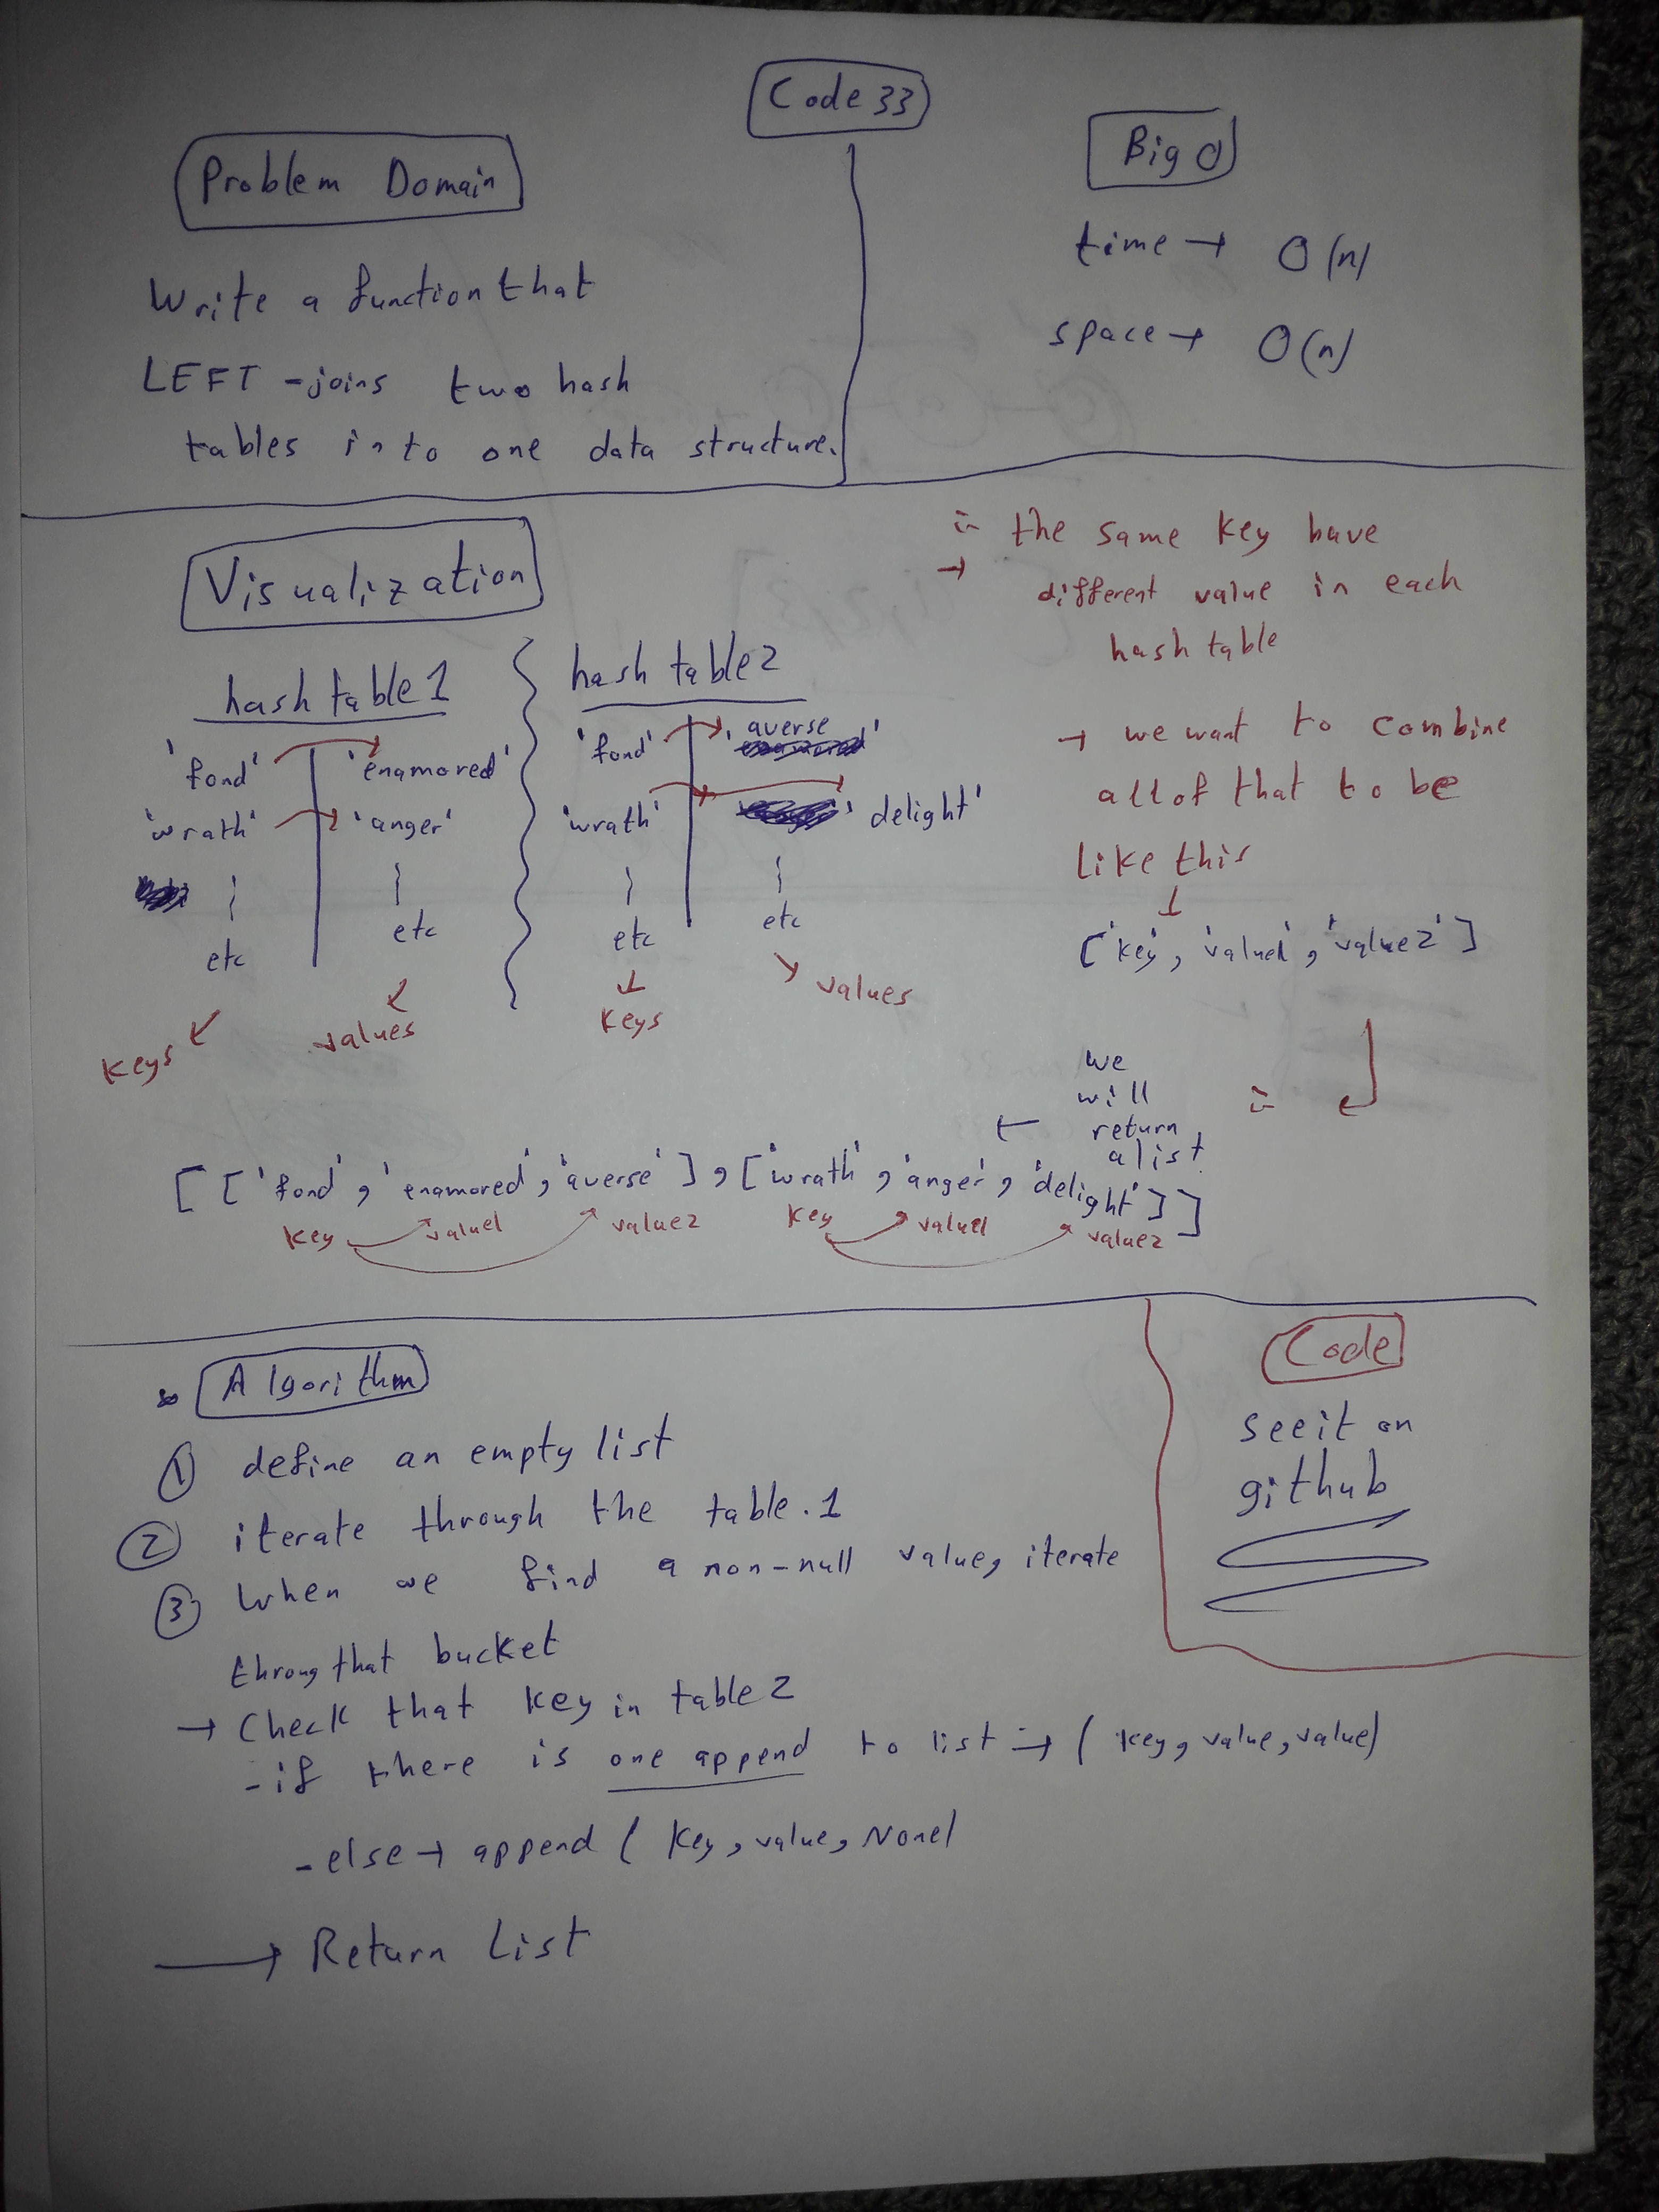 Code 33
Problem Domain
Write a function that
LEFT - joins two hash
tables into one data structure.
Big O
time → O(n)
space → O(n)
Visualization
hash table 1
'fond' 'enamored'
'wrath' 'anger'
etc etc
keys values
hash table 2
'fond' 'averse'
'wrath' 'delight'
etc etc
keys values
the same key have
→ different value in each
hash table
→ we want to combine
all of that to be
like this
↓
['key', 'value1', 'value2']
we
will
return
a list
[['fond', 'enamored', 'averse'], ['wrath', 'anger', 'delight']]
key value1 value2 key value1 value2
Algorithm
① define an empty list
② iterate through the table.1
③ when we find a non-null value, iterate
throug that bucket
→ Check that key in table 2
- if there is one append to list → (key, value, value)
- else → append (key, value, None)
→ Return List
Code
see it on
github